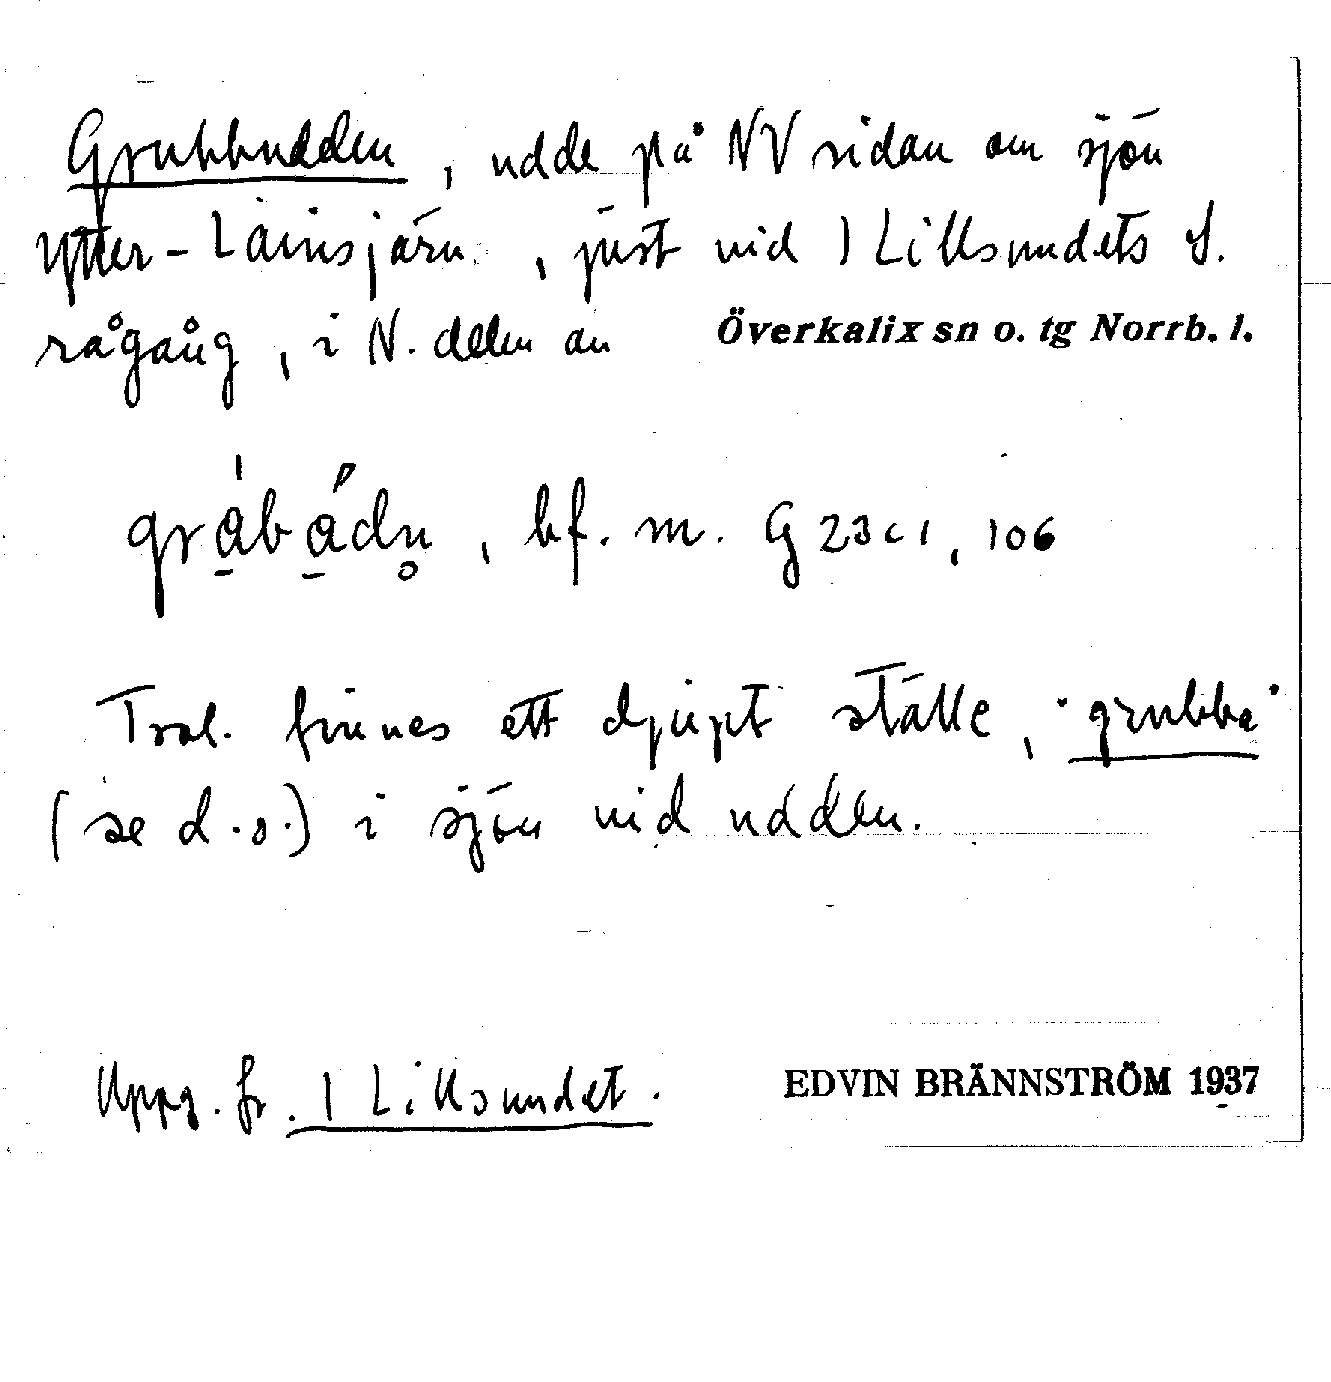 Grubbudden, udde på NV sidan om sjön
Ytter-Lainsjärv, just vid 1 Lillsundets S.
rågång, i N. delen av Överkalix sn o. tg Norrb. l.
grábádn̥, bf. m. G 23 c 1, 106
Trol. finnes ett djupt ställe, "grubba"
(se d.o.) i sjön vid udden.
Uppg. fr. 1 Lillsundet. EDVIN BRÄNNSTRÖM 1937